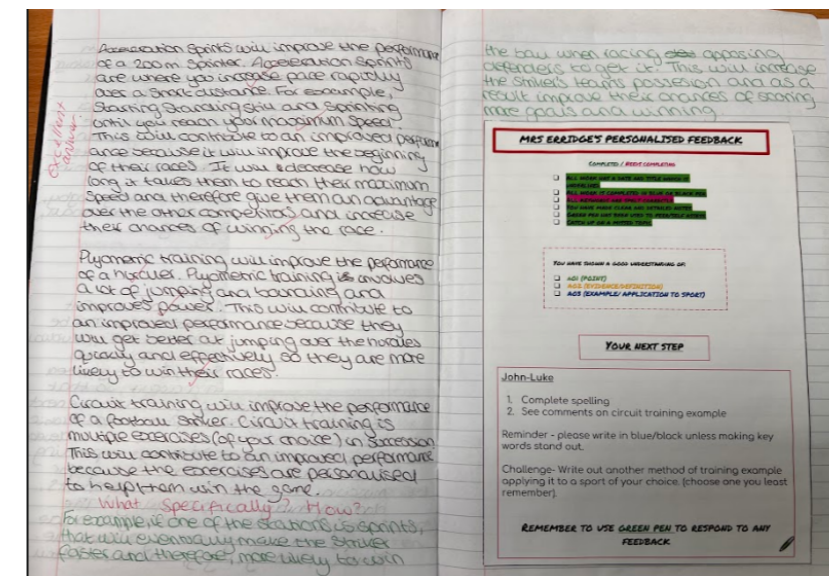 Acceleration Sprints will improve the performance
of a 200m Sprinter. Acceleration Sprints
are where you increase pace rapidly
over a short distance. For example,
Starting Standing still and Sprinting
until you reach your maximum Speed.
This will contribute to an improved perform
ance because it will improve the beginning
of their races. It will decrease how
long it takes them to reach their maximum
Speed and therefore give them an advantage
over the other competitors and increase
their chances of winning the race.
excellent
answer
Plyometric training will improve the performance
of a hurdler. Plyometric training involves
a lot of jumping and bounding and
improves power. This will contribute to
an improved performance because they
will get better at jumping over the hurdles
quickly and effectively so they are more
likely to win their races.
Circuit training will improve the performance
of a football striker. Circuit training is
multiple exercises (of your choice) in succession
This will contribute to an improved performance
because the exercises are personalised
to help them win the game.
What Specifically? How?
For example, if one of the stations is sprints,
that will eventually make the striker
faster and therefore, more likely to win
the ball when racing opposing
defenders to get it. This will increase
the striker's teams possesion and as a
result improve their chances of scoring
more goals and winning
MRS ERRIDGE'S PERSONALISED FEEDBACK
COMPLETED / NEEDS COMPLETING
ALL WORK HAS A DATE AND TITLE WHICH IS
UNDERLINED
ALL WORK IS COMPLETED IN BLUE OR BLACK PEN
ALL KEYWORDS ARE SPELT CORRECTLY
YOU HAVE MADE CLEAR AND DETAILED NOTES
GREEN PEN HAS BEEN USED TO
CATCH UP ON A MISSED TOPIC
YOU HAVE SHOWN A GOOD UNDERSTANDING OF:
AO1 (POINT)
AO2 (EVIDENCE/DEFINITION)
AO3 (EXAMPLE/ APPLICATION TO SPORT)
YOUR NEXT STEP
John-Luke
1. Complete spelling
2. See comments on circuit training example
Reminder - please write in blue/black unless making key
words stand out.
Challenge- Write out another method of training example
applying it to a sport of your choice. (choose one you least
remember).
REMEMBER TO USE GREEN PEN TO RESPOND TO ANY
FEEDBACK